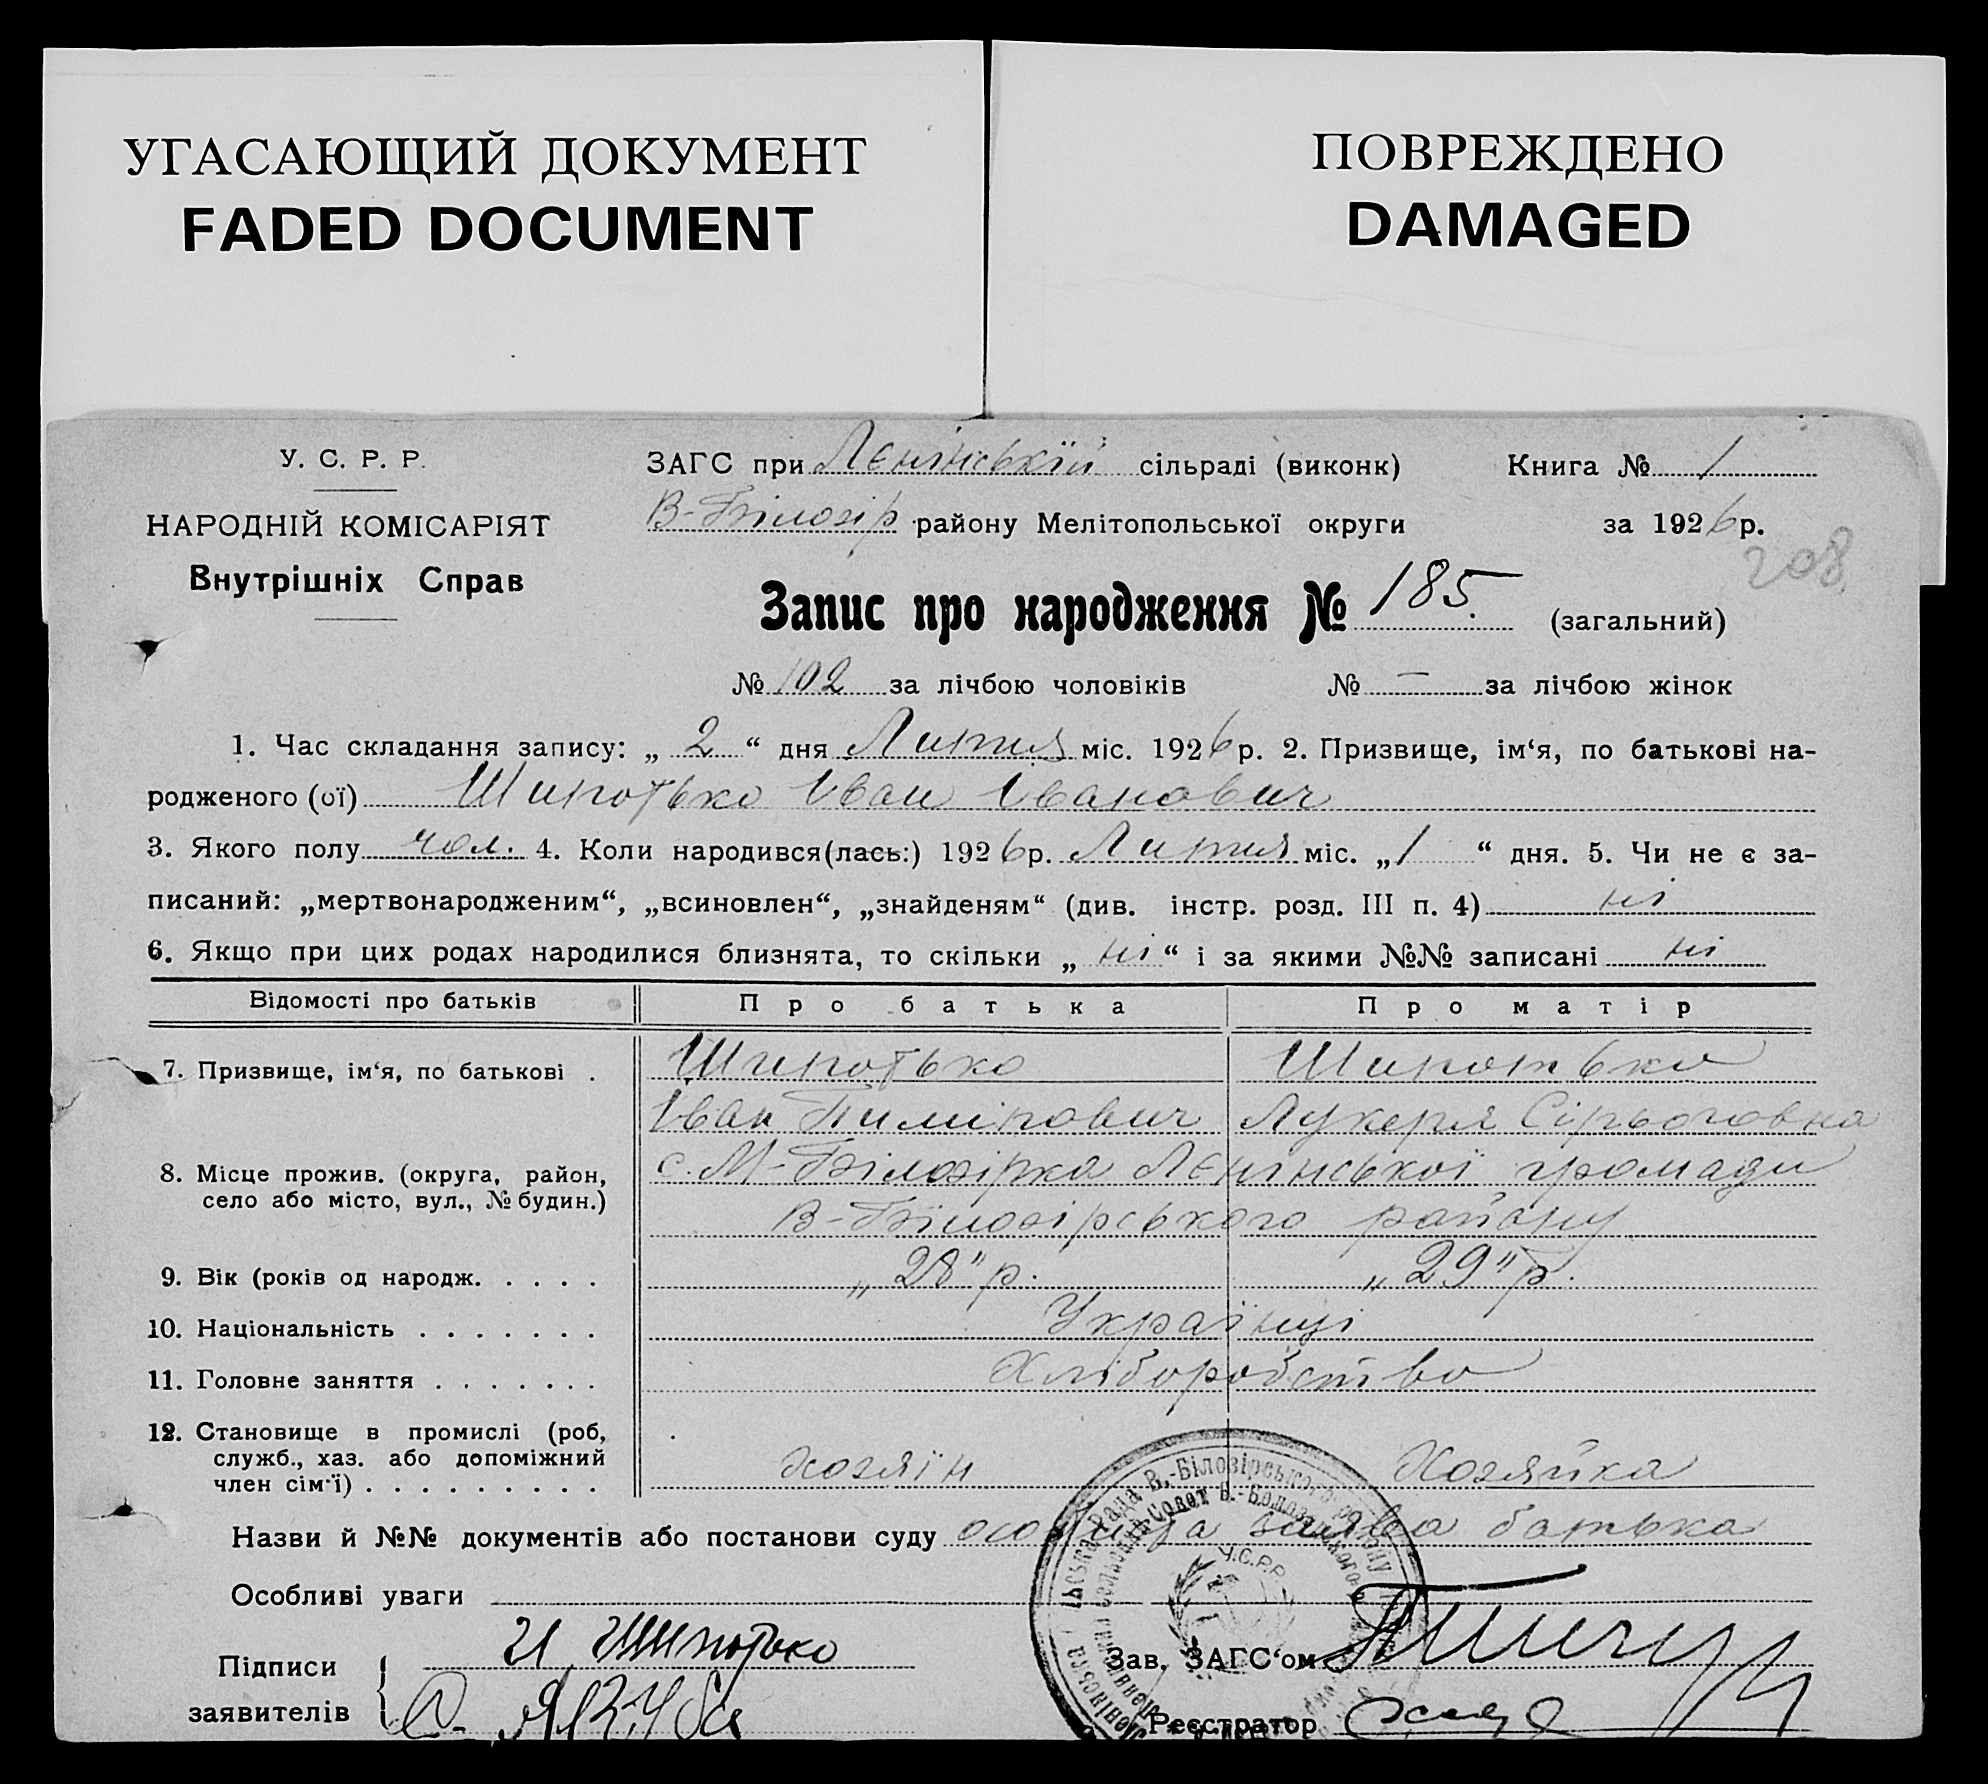 УГАСАЮЩИЙ ДОКУМЕНТ
FADED DOCUMENT
ПОВРЕЖДЕНО
DAMAGED
У. С. Р. Р.
НАРОДНІЙ КОМІСАРІЯТ
Внутрішніх Справ
ЗАГС при Лєнінській сільраді (виконк) Книга № 1
В-Білозір району Мелітопольської округи за 1926 р.
208
Запис про народження № 185. (загальний)
№ 102 за лічбою чоловіків № — за лічбою жінок
1. Час складання запису: „ 2 “ дня Липня міс. 1926 р. 2. Призвище, ім‘я, по батькові на-
родженого (ої) Шипотько Іван Іванович
3. Якого полу чол. 4. Коли народився(лась:) 1926 р. Липня міс. „ 1 “ дня. 5. Чи не є за-
писаний: „мертвонародженим“, „всиновлен“, „знайденям“ (див. інстр. розд. III п. 4) ні
6. Якщо при цих родах народилися близнята, то скільки „ ні “ і за якими №№ записані ні
Відомості про батьків Про батька Про матір
7. Призвище, ім‘я, по батькові . Шипотько Шипотько
Іван Пилипович Лукеря Сірьоговна
8. Місце прожив. (округа, район, с. М-Білозірка Лєнінської громади
село або місто, вул., № будин.) В-Білозірського району
9. Вік (років од народж. . . . . „28“ р. „29“ р.
10. Національність . . . . . . . Українці
11. Головне заняття . . . . . . . Хліборобство
12. Становище в промислі (роб,
служб., хаз. або допоміжний
член сім‘ї) . . . . . . . . . хозяїн Хозяйка
Назви й №№ документів або постанови суду особиста заява батька
Особливі уваги
Підписи
заявителів
И Шипотько
Зав. ЗАГС‘ом
Реєстратор
Рада В.-Білозірського району
У.С.Р.Р.